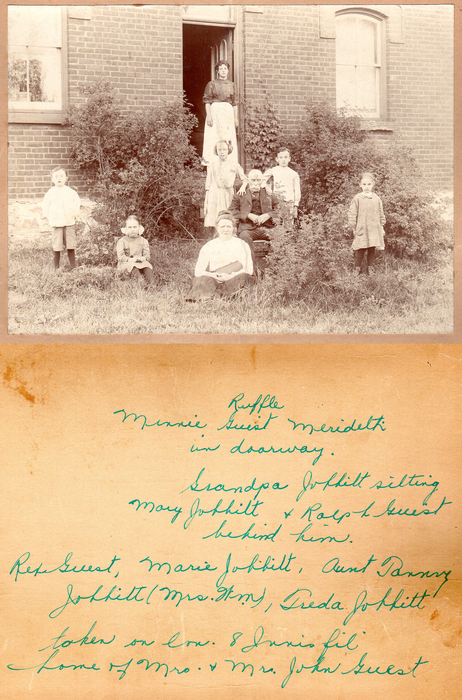 Ruffle
Minnie Guest Merideth
in doorway.
Grandpa Jobbitt sitting
Mary Jobbitt & Ralph Guest
behind him.
Rex Guest, Marie Jobbitt, Aunt Fanny
Jobbitt (Mrs. Wm), Freda Jobbitt
taken on Con. 8 Innisfil
home of Mr. & Mrs. John Guest